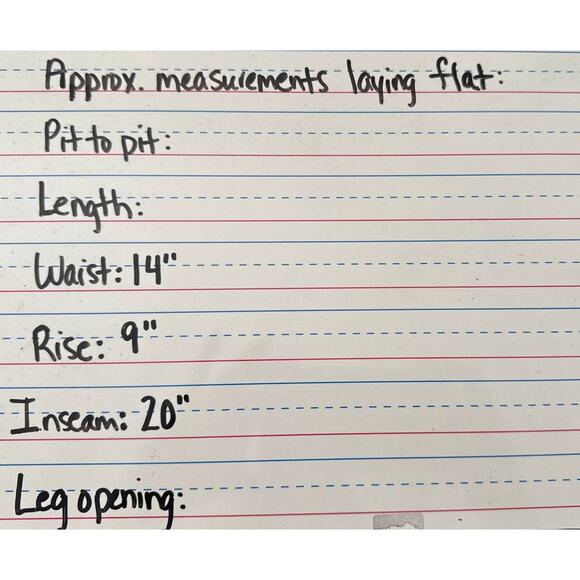 Approx. measurements laying flat:
Pit to pit:
Length:
Waist: 14"
Rise: 9"
Inseam: 20"
Leg opening: